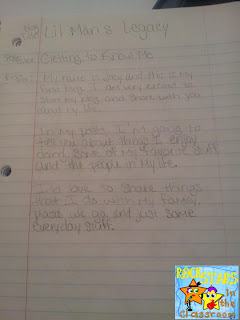 Blog
Title
Lil Man's Legacy
Getting to Know Me
My name is Joey and this is my
first blog. I am very excited to
start my blog and share with you
about my life.
In my posts, I'm going to
tell you about things I enjoy
doing, some of my favorite stuff
and the people in my life.
I'd love to share things
that I do with my family,
places we go, and just some
everyday stuff.
ROCK
STARS
in
the
Classroom